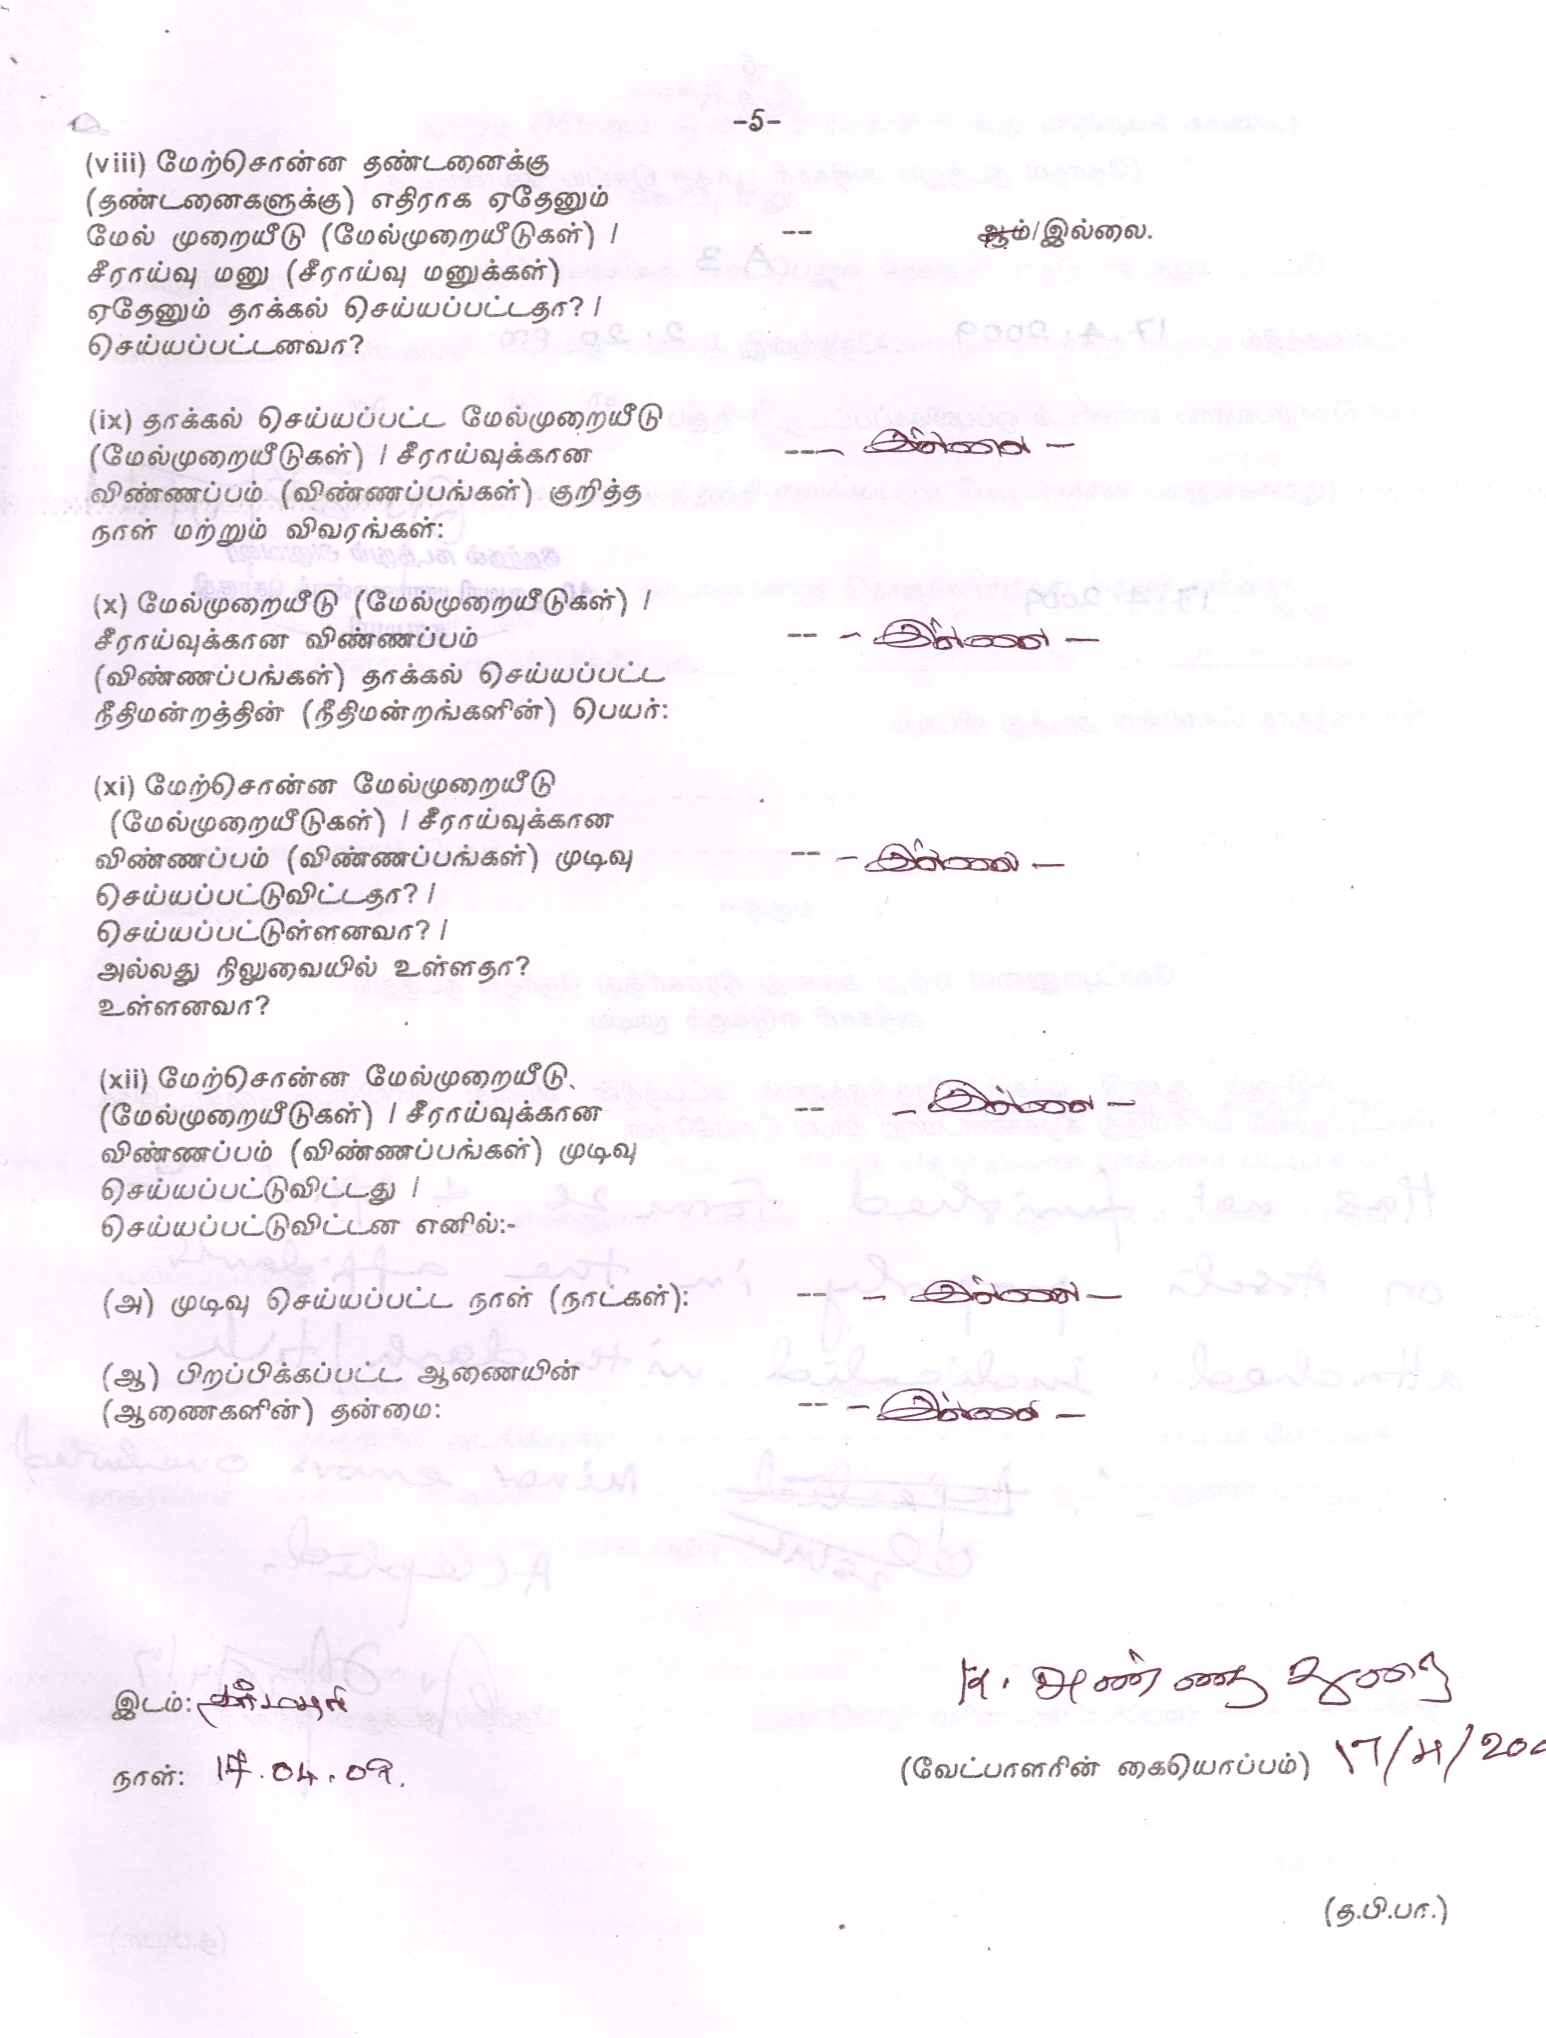 -5-
(viii) மேற்சொன்ன தண்டனைக்கு
(தண்டனைகளுக்கு) எதிராக ஏதேனும்
மேல் முறையீடு (மேல்முறையீடுகள்) / -- ஆம்/இல்லை.
சீராய்வு மனு (சீராய்வு மனுக்கள்)
ஏதேனும் தாக்கல் செய்யப்பட்டதா? /
செய்யப்பட்டனவா?
(ix) தாக்கல் செய்யப்பட்ட மேல்முறையீடு
(மேல்முறையீடுகள்) / சீராய்வுக்கான -- - இல்லை -
விண்ணப்பம் (விண்ணப்பங்கள்) குறித்த
நாள் மற்றும் விவரங்கள்:
(x) மேல்முறையீடு (மேல்முறையீடுகள்) /
சீராய்வுக்கான விண்ணப்பம் -- - இல்லை -
(விண்ணப்பங்கள்) தாக்கல் செய்யப்பட்ட
நீதிமன்றத்தின் (நீதிமன்றங்களின்) பெயர்:
(xi) மேற்சொன்ன மேல்முறையீடு
(மேல்முறையீடுகள்) / சீராய்வுக்கான
விண்ணப்பம் (விண்ணப்பங்கள்) முடிவு -- - இல்லை -
செய்யப்பட்டுவிட்டதா? /
செய்யப்பட்டுள்ளனவா? /
அல்லது நிலுவையில் உள்ளதா?
உள்ளனவா?
(xii) மேற்சொன்ன மேல்முறையீடு
(மேல்முறையீடுகள்) / சீராய்வுக்கான -- - இல்லை -
விண்ணப்பம் (விண்ணப்பங்கள்) முடிவு
செய்யப்பட்டுவிட்டது /
செய்யப்பட்டுவிட்டன எனில்:-
(அ) முடிவு செய்யப்பட்ட நாள் (நாட்கள்): -- - இல்லை -
(ஆ) பிறப்பிக்கப்பட்ட ஆணையின்
(ஆணைகளின்) தன்மை: -- - இல்லை -
K. அண்ணாதுரை
இடம்:
நாள்: 17.04.09. (வேட்பாளரின் கையொப்பம்) 17/4/200
(த.பி.பா.)